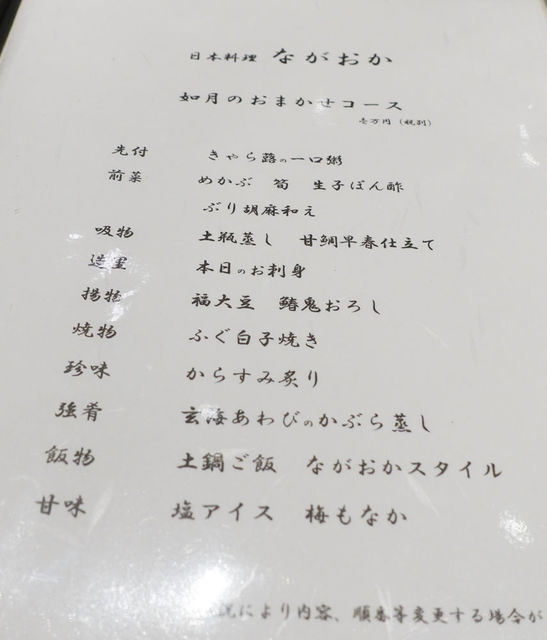 日本料理 ながおか
如月のおまかせコース
壱万円(税別)
先付 きゃら蕗の一口粥
前菜 めかぶ 筍 生子ぽん酢
ぶり胡麻和え
吸物 土瓶蒸し 甘鯛早春仕立て
造里 本日のお刺身
揚物 福大豆 鰆鬼おろし
焼物 ふぐ白子焼き
珍味 からすみ炙り
強肴 玄海あわびのかぶら蒸し
飯物 土鍋ご飯 ながおかスタイル
甘味 塩アイス 梅もなか
況により内容、順番等変更する場合が